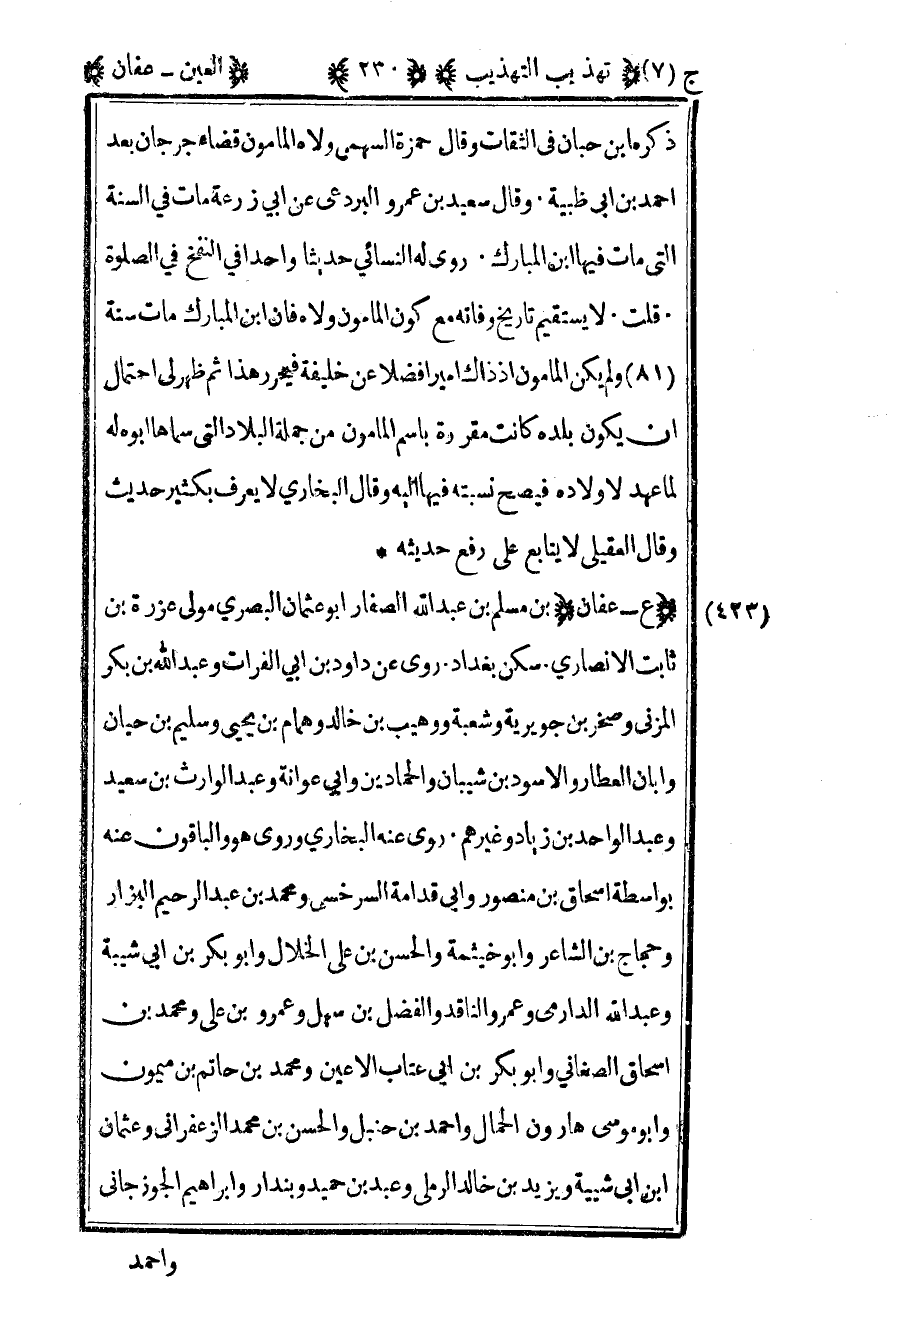 ج (٧) ﴿ تهذيب التهذيب ﴾ ﴿ ٢٣٠ ﴾ ﴿ العين ـ عفان ﴾
ذكره ابن حبان فى الثقات وقال حمزة السهمى ولاه المامون قضاء جرجان بعد
احمد بن ابى ظبية ٠ وقال سعيد بن عمرو البردعى عن ابي زرعة مات في السنة
التى مات فيها ابن المبارك ٠ روى له النسائي حديثا واحدا في النفخ في الصلوة
٠ قلت ٠ لا يستقيم تاريخ وفاته مع كون المامون ولاه فان ابن المبارك مات سنة
(٨١) ولم يكن المامون اذ ذاك اميرا فضلا عن خليفة فيحرر هذا ثم ظهر لى احتمال
ان يكون بلده كانت مقررة باسم المامون من جملة البلاد التى سماها ابوه له
لما عهد لاولاده فيصح نسبته فيها اليه وقال البخاري لا يعرف بكثير حديث
وقال العقيلى لا يتابع على رفع حديثه *
﴿ ع ـ عفان ﴾ بن مسلم بن عبدالله الصفار ابو عثمان البصري مولى عزرة بن
(٤٢٣)
ثابت الانصاري ٠ سكن بغداد ٠ روى عن داود بن ابي الفرات وعبدالله بن بكر
المزنى وصخر بن جويرية وشعبة ووهيب بن خالد وهمام بن يحيى وسليم بن حيان
وابان العطار والاسود بن شيبان والحمادين وابي عوانة وعبد الوارث بن سعيد
وعبد الواحد بن زياد وغيرهم ٠ روى عنه البخاري وروى هو والباقون عنه
بواسطة اسحاق بن منصور وابي قدامة السرخسى ومحمد بن عبد الرحيم البزار
وحجاج بن الشاعر وابو خيثمة والحسن بن على الخلال وابو بكر بن ابي شيبة
وعبدالله الدارمى وعمرو الناقد والفضل بن سهل وعمرو بن على ومحمد بن
اسحاق الصغاني وابو بكر بن ابي عتاب الاعين ومحمد بن حاتم بن ميمون
وابو موسى هارون الحمال واحمد بن حنبل والحسن بن محمد الزعفرانى وعثمان
ابن ابى شيبة ويزيد بن خالد الرملى وعبد بن حميد وبندار وابراهيم الجوزجانى
واحمد